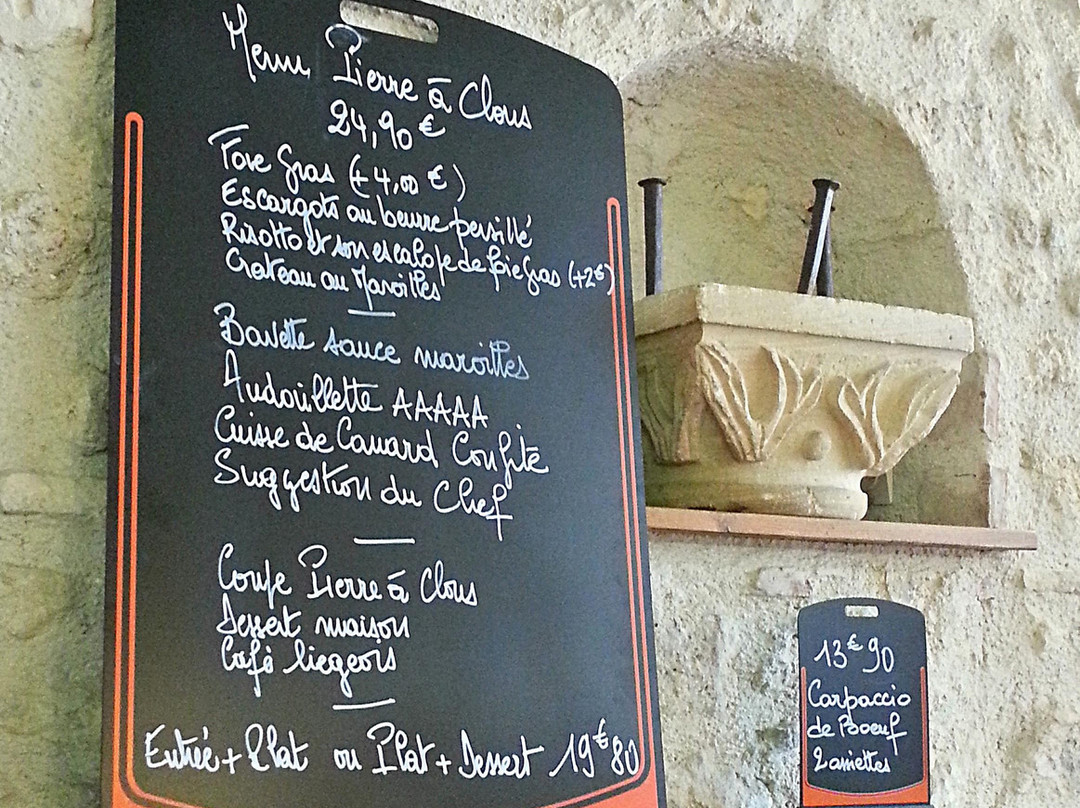 Menu Pierre à Clous
24,90 €
Foie Gras (+4,00 €)
Escargots au beurre persillé
Risotto et son escalope de foie Gras (+2€)
Crateau au Maroilles
Bavette sauce maroilles
Andouillette AAAAA
Cuisse de Canard Confite
Suggestion du Chef
Coupe Pierre à Clous
Dessert maison
Café liegeois
Entrée + Plat ou Plat + Dessert 19€80
13€90
Carpaccio
de Boeuf
2 assiettes